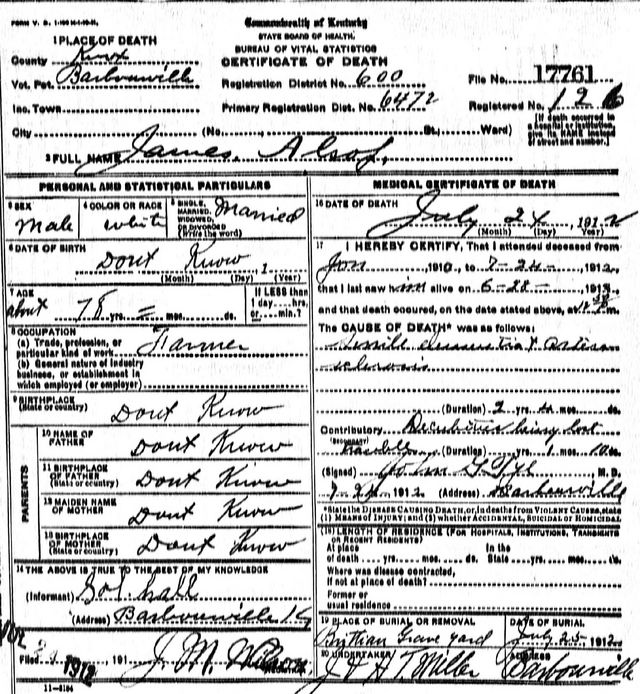 FORM V. S. 1-
Commonwealth of Kentucky
STATE BOARD OF HEALTH.
BUREAU OF VITAL STATISTICS
CERTIFICATE OF DEATH
1 PLACE OF DEATH
County Knox
Vot. Pct. Barbourville
Inc. Town
City (No. St., Ward)
Registration District No. 600
Primary Registration Dist. No. 6472
File No. 17761
Registered No. 126
[If death occurred in a hospital or institution, give its NAME instead of street and number.]
2 FULL NAME James Alsop,
PERSONAL AND STATISTICAL PARTICULARS
3 SEX Male
4 COLOR OR RACE white
5 SINGLE, MARRIED, WIDOWED, OR DIVORCED (Write the word) Married
6 DATE OF BIRTH
Dont Know, 1
(Month) (Day) (Year)
7 AGE
about 78 yrs. = mos. ds.
If LESS than 1 day.... hrs. or.... min.?
8 OCCUPATION
(a) Trade, profession, or particular kind of work Farmer
(b) General nature of industry business, or establishment in which employed (or employer)
9 BIRTHPLACE
(State or country) Dont Know
PARENTS
10 NAME OF FATHER Dont Know
11 BIRTHPLACE OF FATHER (State or country) Dont Know
12 MAIDEN NAME OF MOTHER Dont Know
13 BIRTHPLACE OF MOTHER (State or country) Dont Know
14 THE ABOVE IS TRUE TO THE BEST OF MY KNOWLEDGE
(Informant) Sol Hall
(Address) Barbourville Ky
Filed 1912, 191 J. M. Wilson
11-3184
MEDICAL CERTIFICATE OF DEATH
16 DATE OF DEATH
July 24, 1912
(Month) (Day) (Year)
17 I HEREBY CERTIFY, That I attended deceased from
Jan, 1910, to 7-24-, 1912,
that I last saw him alive on 6-28-, 1912,
and that death occured, on the date stated above, at m.
The CAUSE OF DEATH* was as follows:
Senile dementia & Arterio
sclerosis
(Duration) 2 yrs. 4 mos. ds.
Contributory Decubitus
(SECONDARY) (Duration) yrs. 1 mos. 10 ds.
(Signed) John G. Tye M. D.
7-24, 1912 (Address) Barbourville
*State the DISEASE CAUSING DEATH, or, in deaths from VIOLENT CAUSES, state
(1) MEANS OF INJURY; and (2) whether ACCIDENTAL, SUICIDAL or HOMICIDAL.
(18) LENGTH OF RESIDENCE (FOR HOSPITALS, INSTITUTIONS, TRANSIENTS
OR RECENT RESIDENTS)
At place of death yrs. mos. ds. In the State yrs. mos. ds.
Where was disease contracted,
if not at place of death?
Former or
usual residence
19 PLACE OF BURIAL OR REMOVAL
Brittian Grave yard
DATE OF BURIAL
July 25, 1912
20 UNDERTAKER
J & H T. Miller
ADDRESS
Barbourville